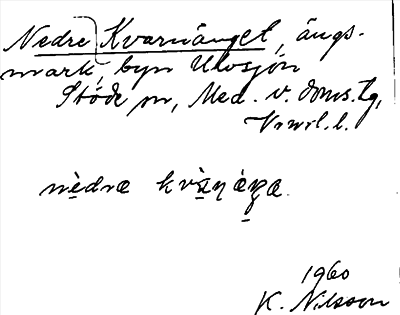 Nedre Kvarnänget, ängs-
mark, byn Ulvsjön
Stöde sn, Med. v. doms. tg,
Vnrl. l.
nedra
1960
K. Nilsson